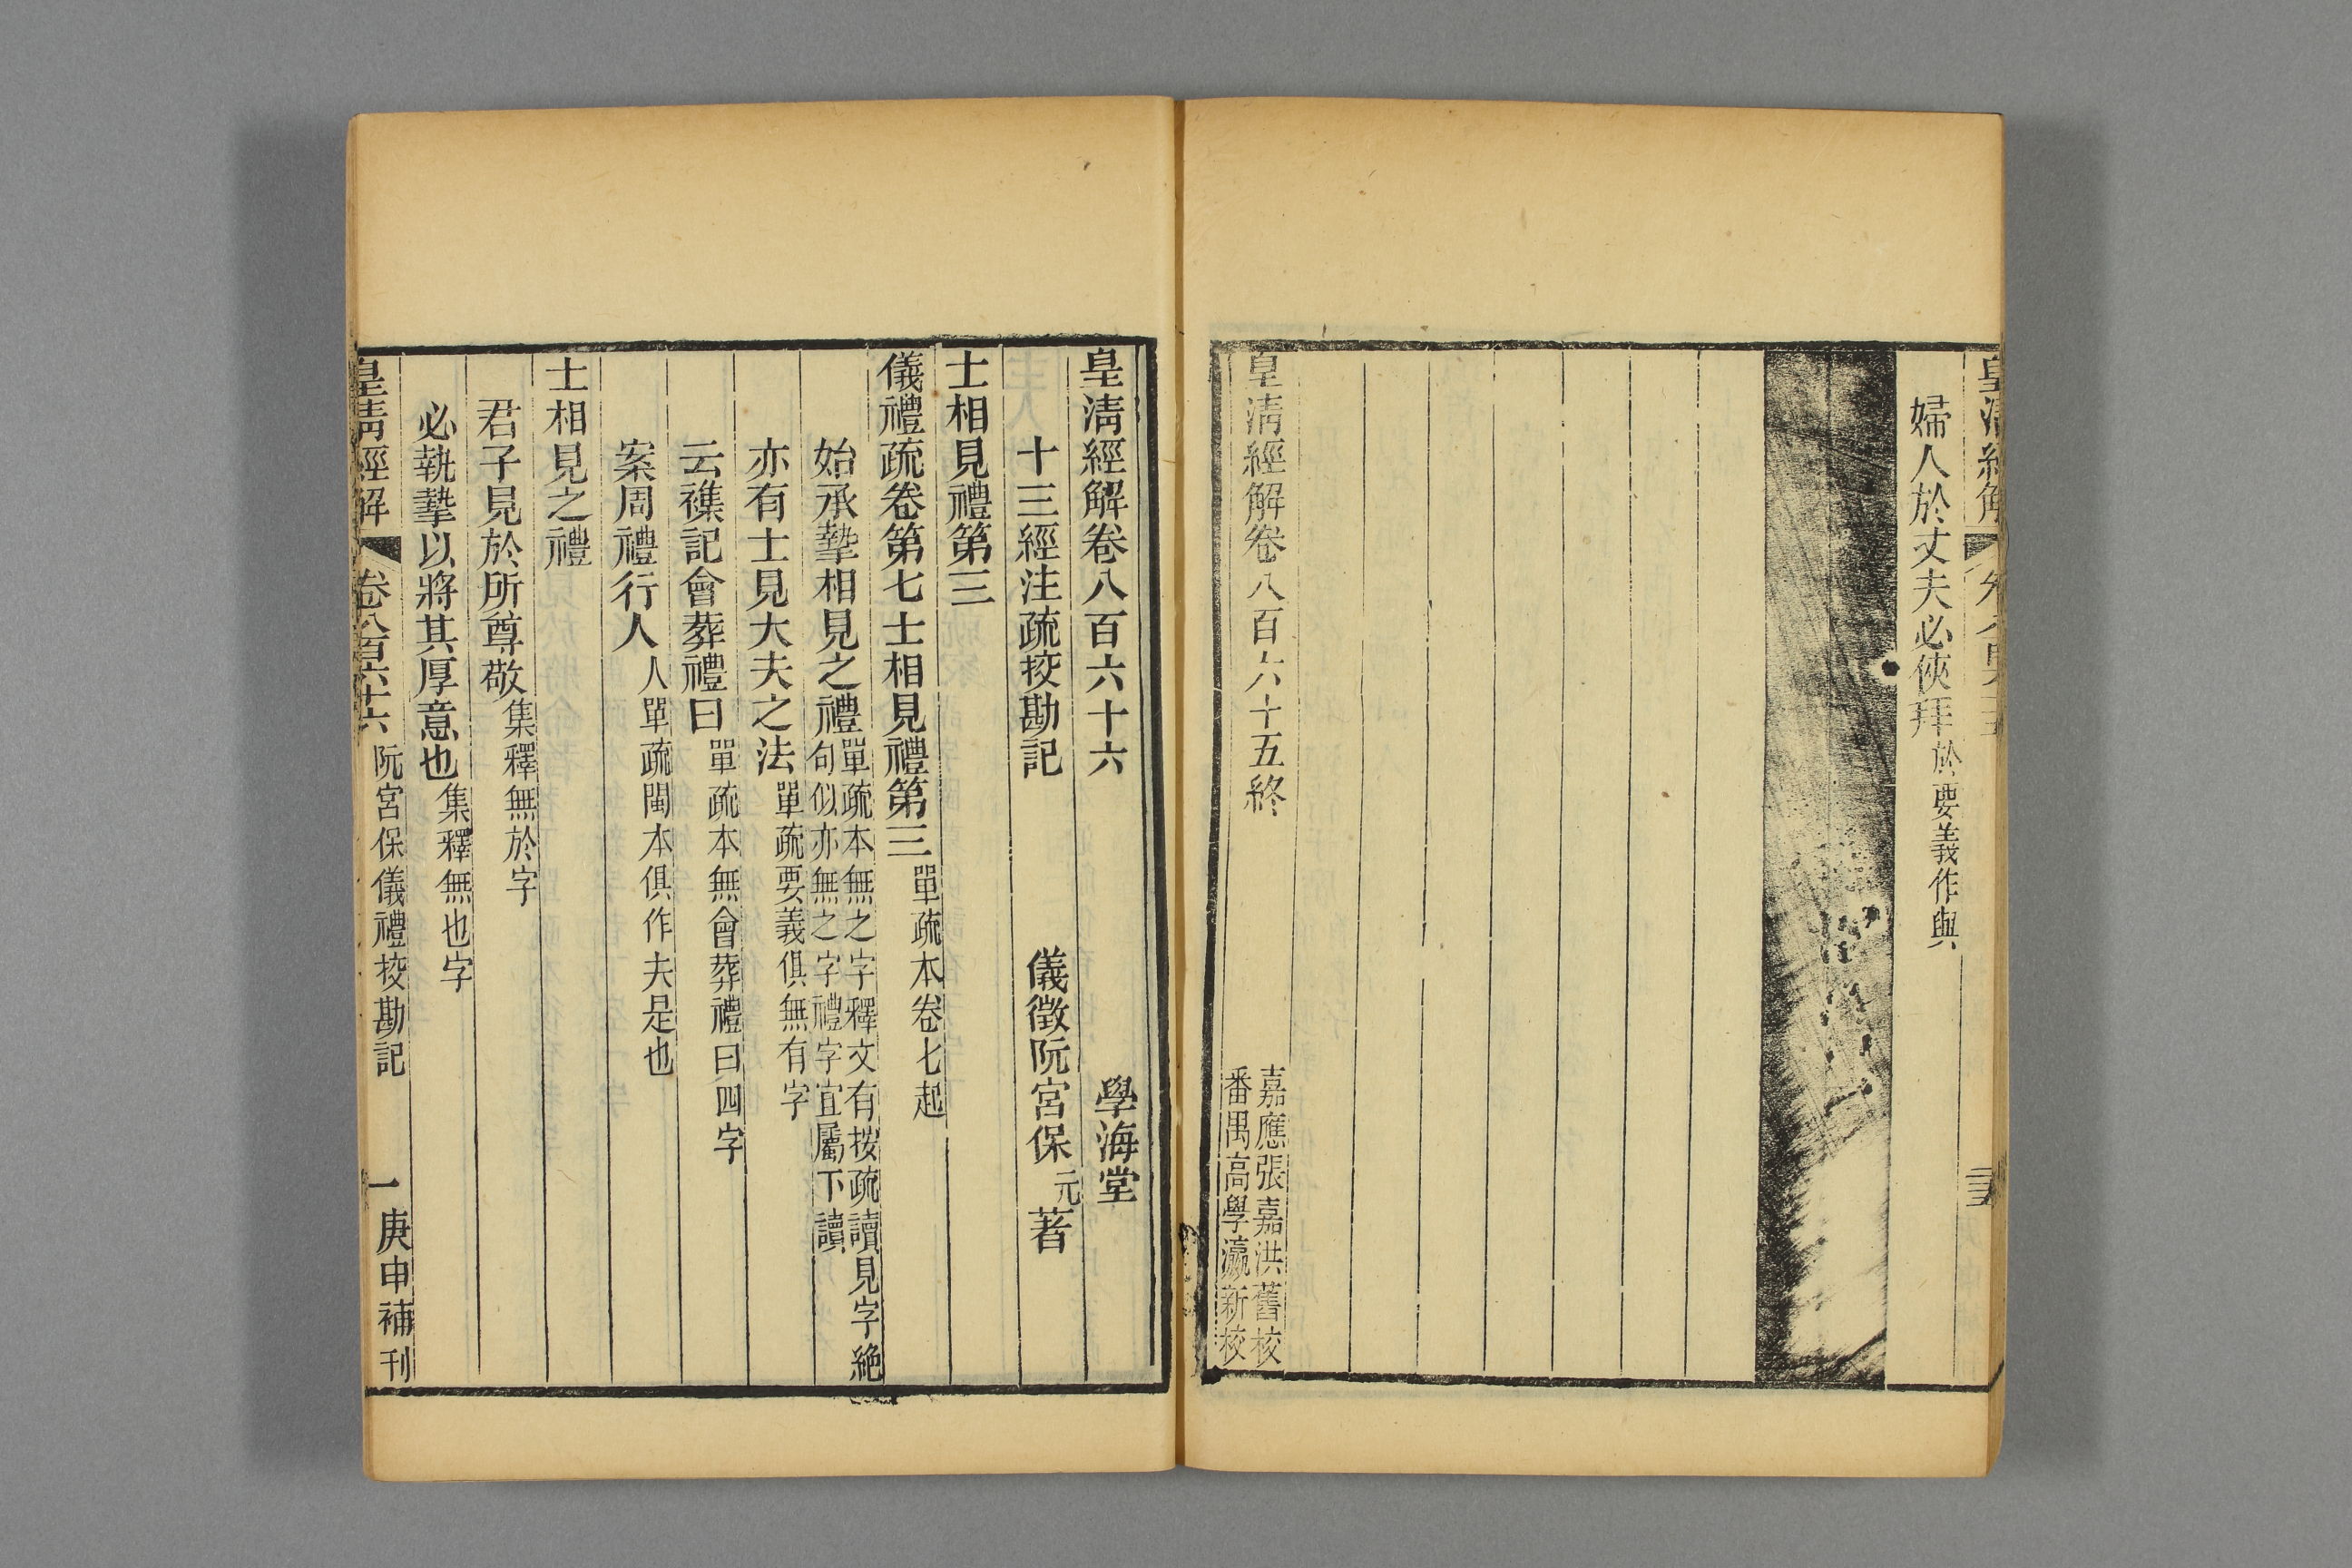 皇清經解
婦人於丈夫必俠拜於要義作與
皇清經解卷八百六十五終
嘉應張嘉洪舊校
番禺高學瀛新校
皇清經解卷八百六十六
學海堂
十三經注疏挍勘記
儀徵阮宮保元著
士相見禮第三
儀禮疏卷第七士相見禮第三單疏本卷七起
始承摯相見之禮單疏本無之字釋文有按疏讀見字絶
句似亦無之字禮字宜屬下讀
亦有士見大夫之法單疏要義俱無有字
云襍記會葬禮曰單疏本無會葬禮曰四字
案周禮行人人單疏閩本俱作夫是也
士相見之禮
君子見於所尊敬集釋無於字
必執摯以將其厚意也集釋無也字
皇清經解
卷八百六十六
阮宮保儀禮挍勘記
一
庚申補刊